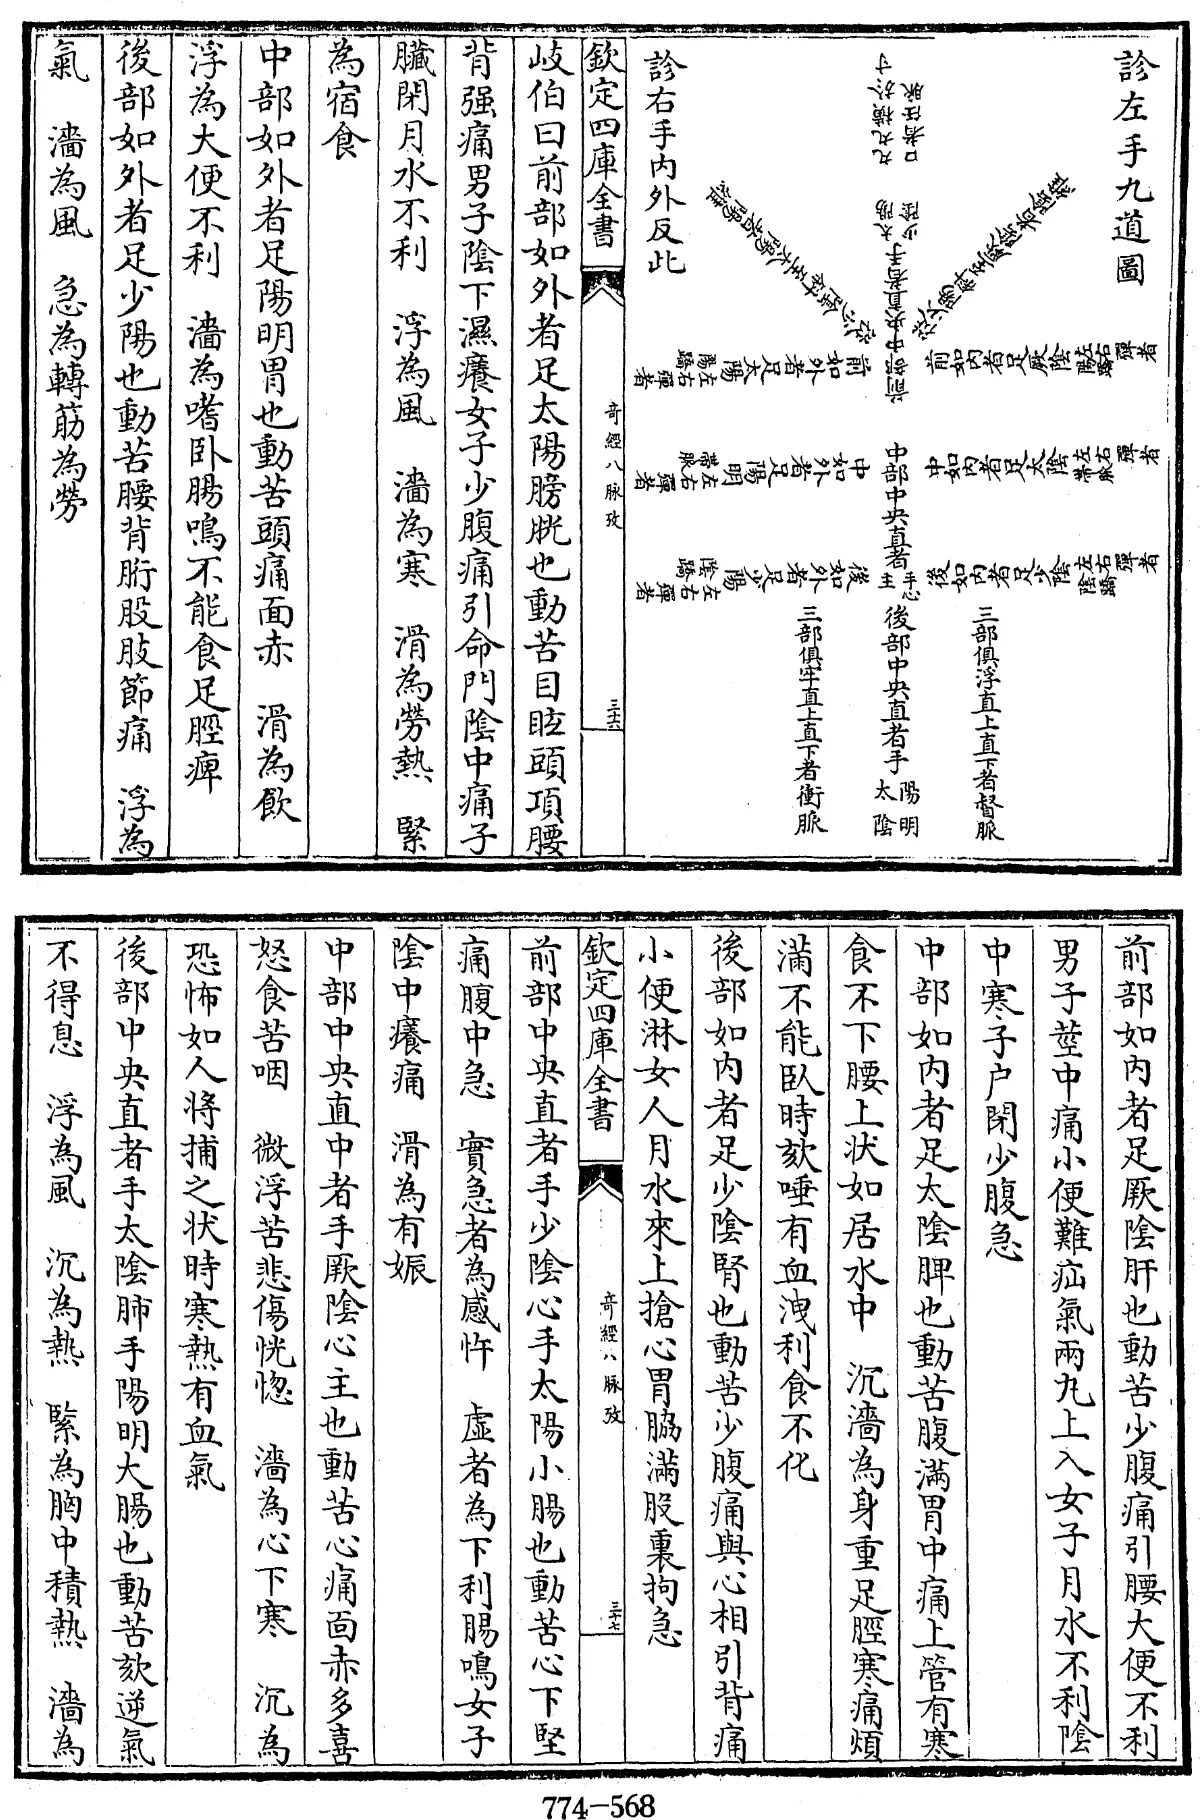 診左手九道圖
前如內者足厥陰
左右彈者陰蹻
中如內者足太陰
左右彈者帶脈
後如內者足少陰
左右彈者陰蹻
三部俱浮直上直下者督脈
九丸橫於寸口者任脈
前部中央直者手太陽少陰
中部中央直者手心主
後部中央直者手陽明太陰
前如外者足太陽
左右彈者陽蹻
中如外者足陽明
左右彈者帶脈
後如外者足少陽
左右彈者陰蹻
三部俱牢直上直下者衝脈
診右手內外反此
欽定四庫全書
奇經八脈攷
三十六
岐伯曰前部如外者足太陽膀胱也動苦目眩頭項腰
背强痛男子陰下濕癢女子少腹痛引命門陰中痛子
臟閉月水不利 浮為風 濇為寒 滑為勞熱 緊
為宿食
中部如外者足陽明胃也動苦頭痛面赤 滑為飲
浮為大便不利 濇為嗜卧腸鳴不能食足脛痺
後部如外者足少陽也動苦腰背胻股肢節痛 浮為
氣 濇為風 急為轉筋為勞
前部如內者足厥陰肝也動苦少腹痛引腰大便不利
男子莖中痛小便難疝氣兩丸上入女子月水不利陰
中寒子户閉少腹急
中部如內者足太陰脾也動苦腹滿胃中痛上管有寒
食不下腰上状如居水中 沉濇為身重足脛寒痛煩
滿不能臥時欬唾有血洩利食不化
後部如內者足少陰腎也動苦少腹痛與心相引背痛
小便淋女人月水來上搶心胃脇滿股裏拘急
欽定四庫全書
奇經八脈攷
三十七
前部中央直者手少陰心手太陽小腸也動苦心下堅
痛腹中急 實急者為感忤 虛者為下利腸鳴女子
陰中癢痛 滑為有娠
中部中央直中者手厥陰心主也動苦心痛面赤多喜
怒食苦咽 微浮苦悲傷恍惚 濇為心下寒 沉為
恐怖如人將捕之状時寒熱有血氣
後部中央直者手太陰肺手陽明大腸也動苦欬逆氣
不得息 浮為風 沉為熱 緊為胸中積熱 濇為
774-568